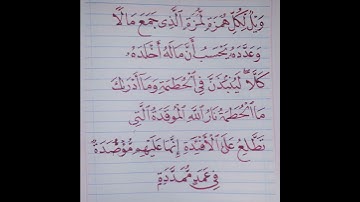 وَيْلٌ لِّكُلِّ هُمَزَةٍ لُّمَزَةٍ الَّذِى جَمَعَ مَالًا
وَعَدَّدَهُ يَحْسَبُ أَنَّ مَالَهُ أَخْلَدَهُ
كَلَّا لَيُنْبَذَنَّ فِى الْحُطَمَةِ وَمَا أَدْرَىٰكَ
مَا الْحُطَمَةُ نَارُ اللَّهِ الْمُوقَدَةُ الَّتِى
تَطَّلِعُ عَلَى الْأَفْئِدَةِ إِنَّهَا عَلَيْهِم مُّؤْصَدَةٌ
فِى عَمَدٍ مُّمَدَّدَةٍ